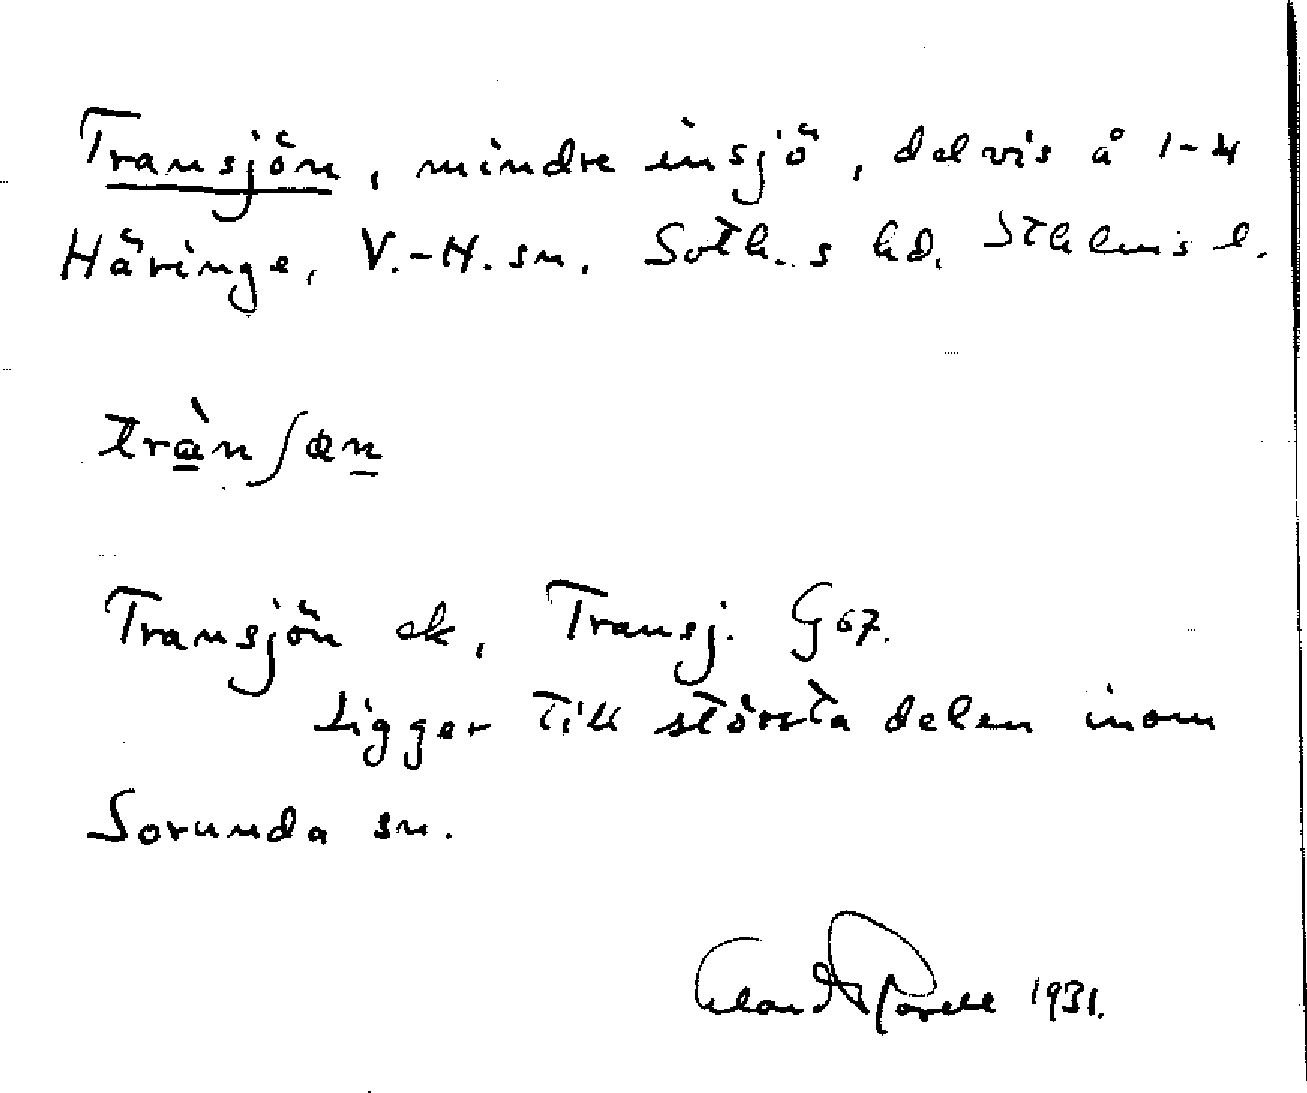 Transjön, mindre insjö, delvis å 1-4
Häringe, V.-H. sn. Soth..s hd. Sthlms l.
tràn∫ɷn
Transjön ek, Transj. G67.
Ligger till största delen inom
Sorunda sn.
1931.